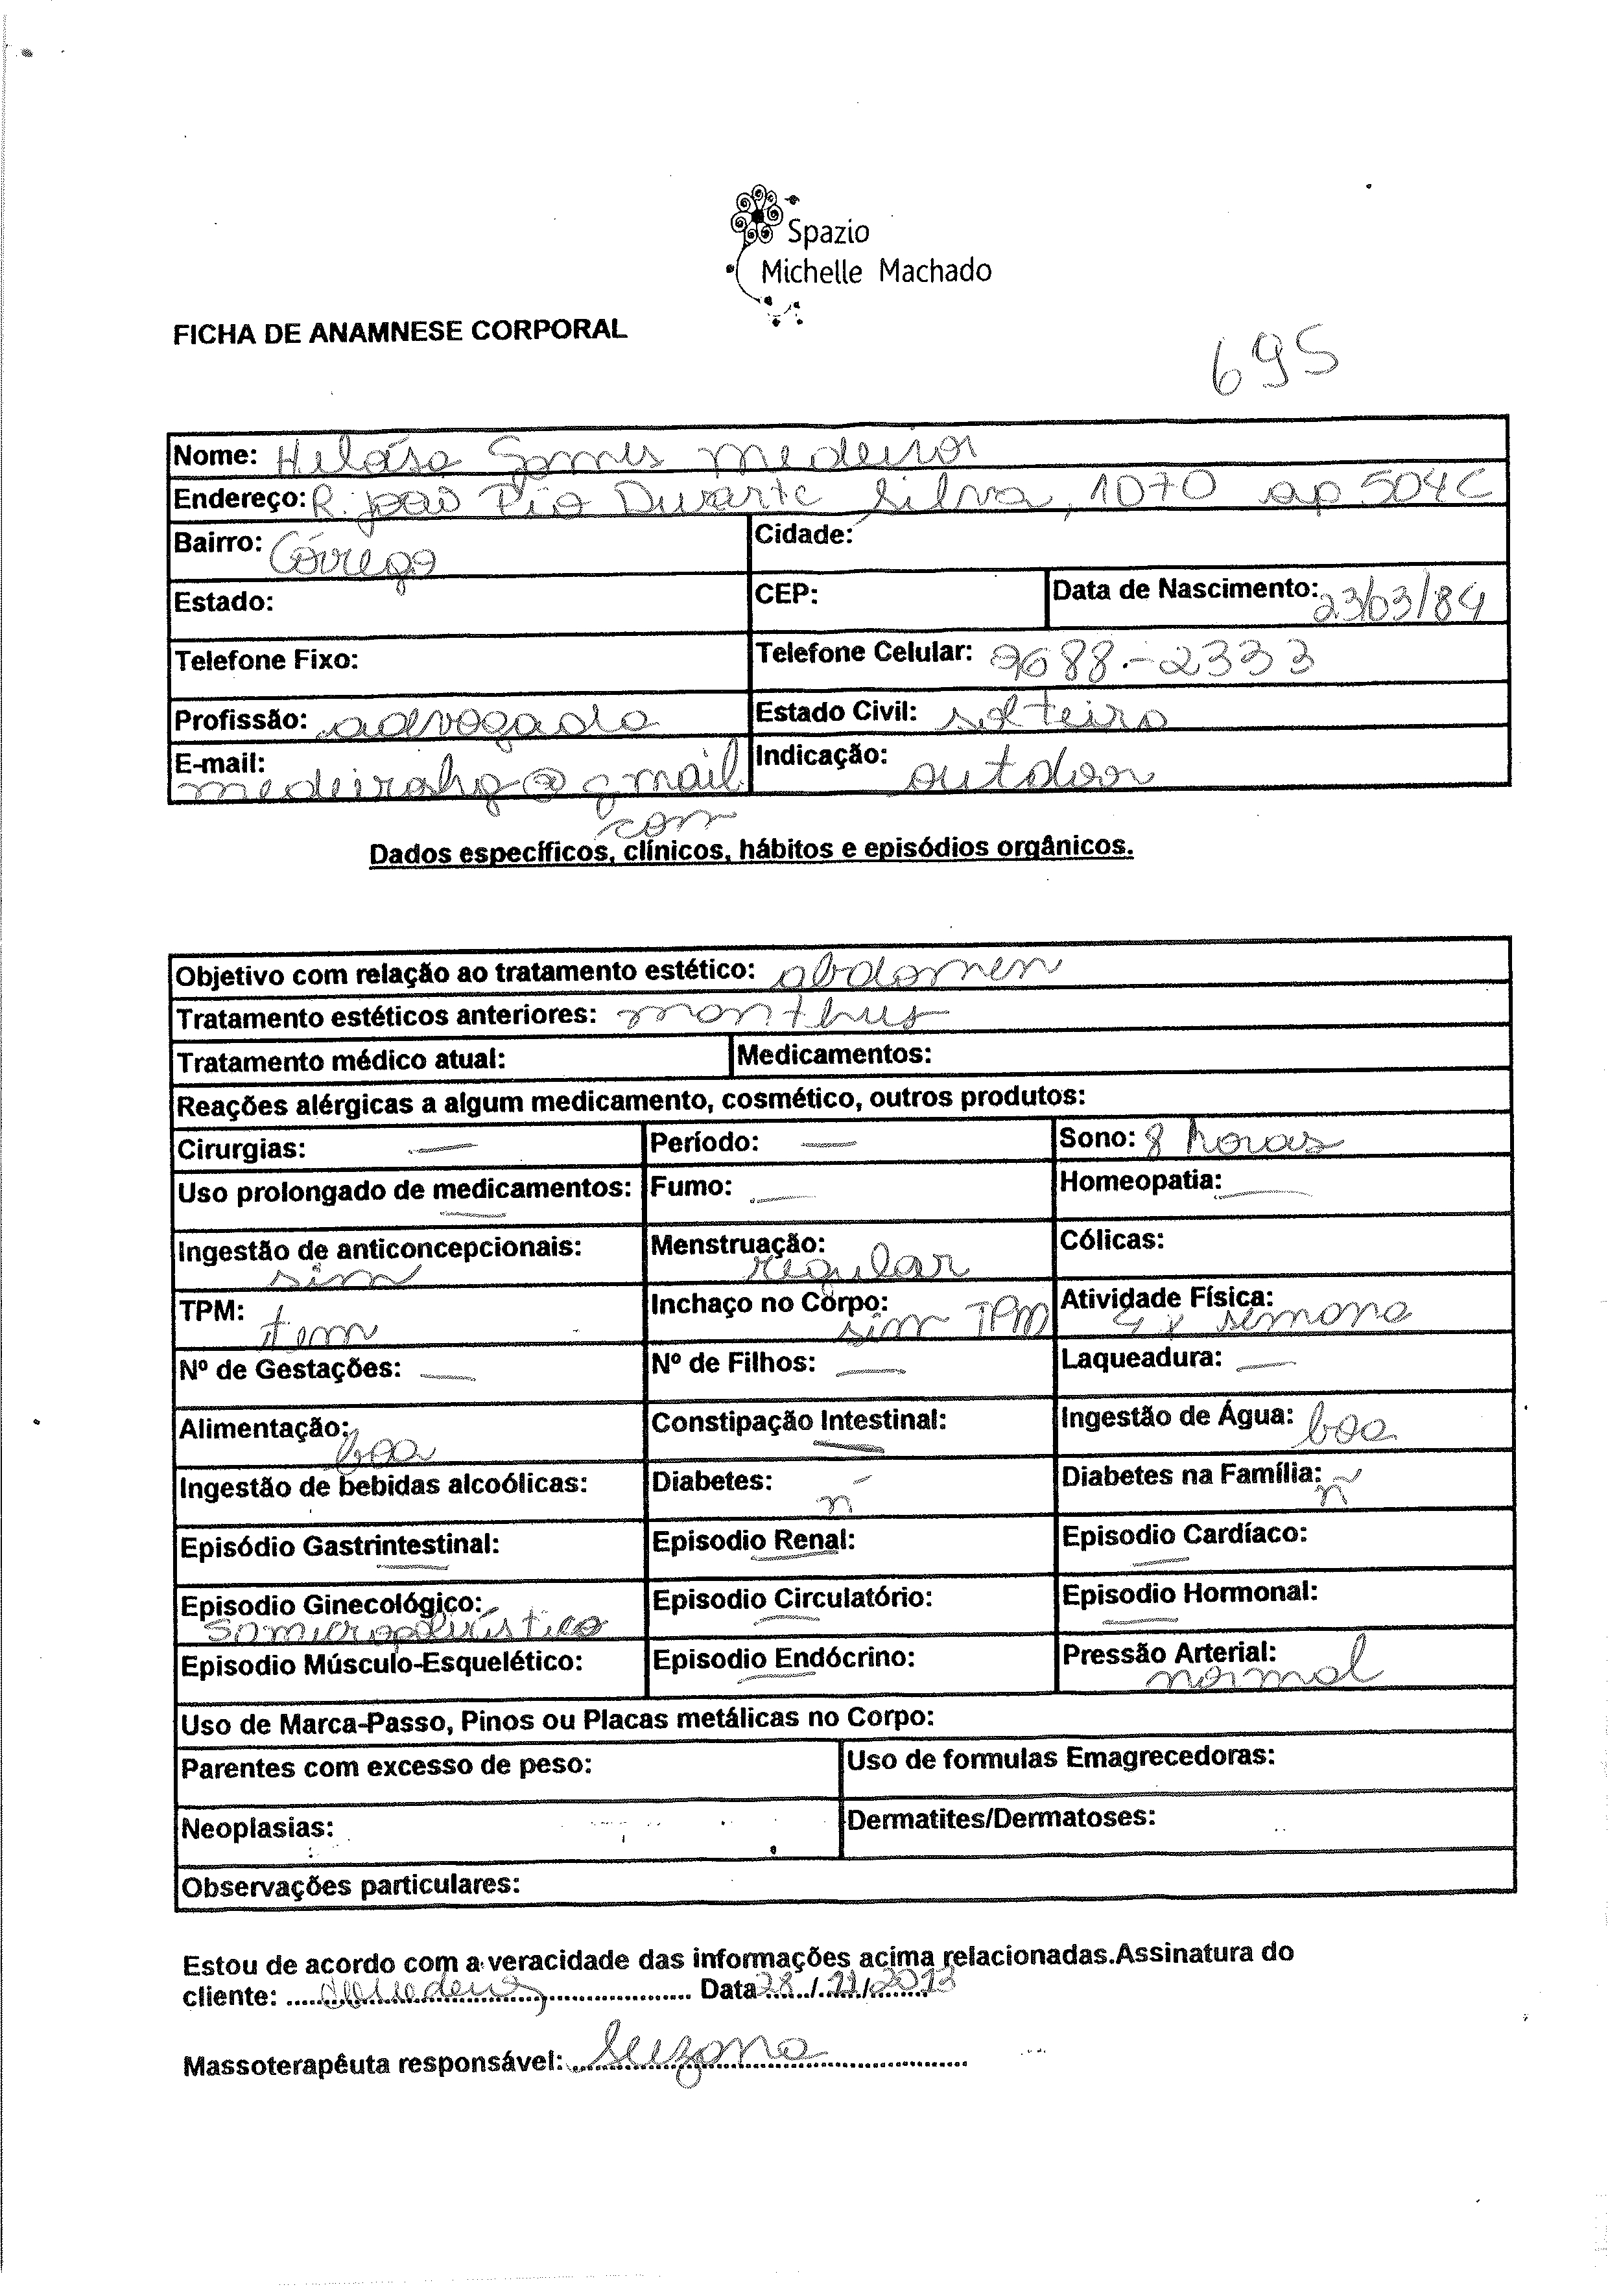 Spazio
Michelle Machado
FICHA DE ANAMNESE CORPORAL
695
Nome: Heloísa Gomes Medeiros
Endereço: R. João Pio Duarte Silva, 1070 ap 504C
Bairro: Córrego Cidade:
Estado: CEP: Data de Nascimento: 23/03/84
Telefone Fixo: Telefone Celular: 9688-2333
Profissão: advogada Estado Civil: solteira
E-mail: Indicação: outdoor
medeiroshg@gmail
com
Dados específicos, clínicos, hábitos e episódios orgânicos.
Objetivo com relação ao tratamento estético: abdomen
Tratamento estéticos anteriores: manthus
Tratamento médico atual: Medicamentos:
Reações alérgicas a algum medicamento, cosmético, outros produtos:
Cirurgias: — Período: — Sono: 8 horas
Uso prolongado de medicamentos: — Fumo: — Homeopatia: —
Ingestão de anticoncepcionais: sim Menstruação: regular Cólicas:
TPM: tem Inchaço no Corpo: sim TPM Atividade Física: 4x semana
Nº de Gestações: — Nº de Filhos: — Laqueadura: —
Alimentação: boa Constipação Intestinal: — Ingestão de Água: boa
Ingestão de bebidas alcoólicas: Diabetes: ñ Diabetes na Família: ñ
Episódio Gastrintestinal: — Episodio Renal: — Episodio Cardíaco: —
Episodio Ginecológico: Episodio Circulatório: — Episodio Hormonal: —
Episodio Músculo-Esquelético: Episodio Endócrino: — Pressão Arterial: normal
Uso de Marca-Passo, Pinos ou Placas metálicas no Corpo:
Parentes com excesso de peso: Uso de formulas Emagrecedoras:
Neoplasias: Dermatites/Dermatoses:
Observações particulares:
Estou de acordo com a veracidade das informações acima relacionadas.Assinatura do
cliente: ........ Data 28/11/2013
Massoterapêuta responsável: Suzana